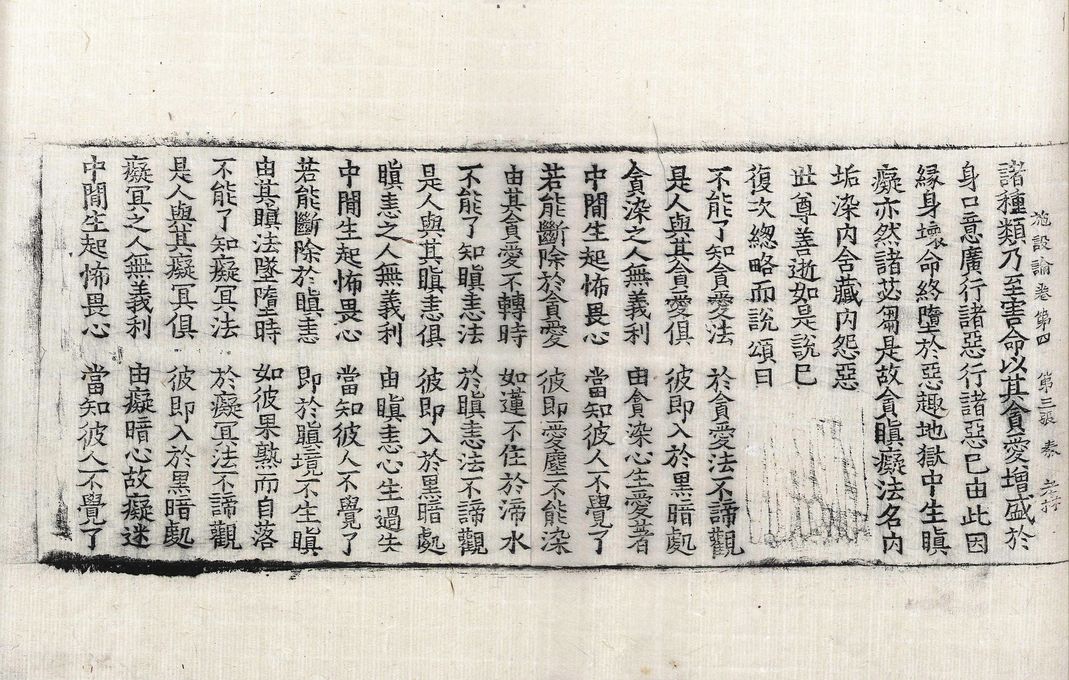 施設論卷第四 第三張 恭
諸種類乃至害命以其貪愛增盛於
身口意廣行諸惡行諸惡已由此因
緣身壞命終墮於惡趣地獄中生瞋
癡亦然諸苾芻是故貪瞋癡法名內
垢染內含藏內怨惡
世尊善逝如是說已
復次總略而說頌曰
不能了知貪愛法 於貪愛法不諦觀
是人與其貪愛俱 彼即入於黑暗處
貪染之人無義利 由貪染心生愛著
中間生起怖畏心 當知彼人不覺了
若能斷除於貪愛 彼即愛塵不能染
由其貪愛不轉時 如蓮不住於渧水
不能了知瞋恚法 於瞋恚法不諦觀
是人與其瞋恚俱 彼即入於黑暗處
瞋恚之人無義利 由瞋恚心生過失
中間生起怖畏心 當知彼人不覺了
若能斷除於瞋恚 即於瞋境不生瞋
由其瞋法墜墮時 如彼果熟而自落
不能了知癡冥法 於癡冥法不諦觀
是人與其癡冥俱 彼即入於黑暗處
癡冥之人無義利 由癡暗心故癡迷
中間生起怖畏心 當知彼人不覺了